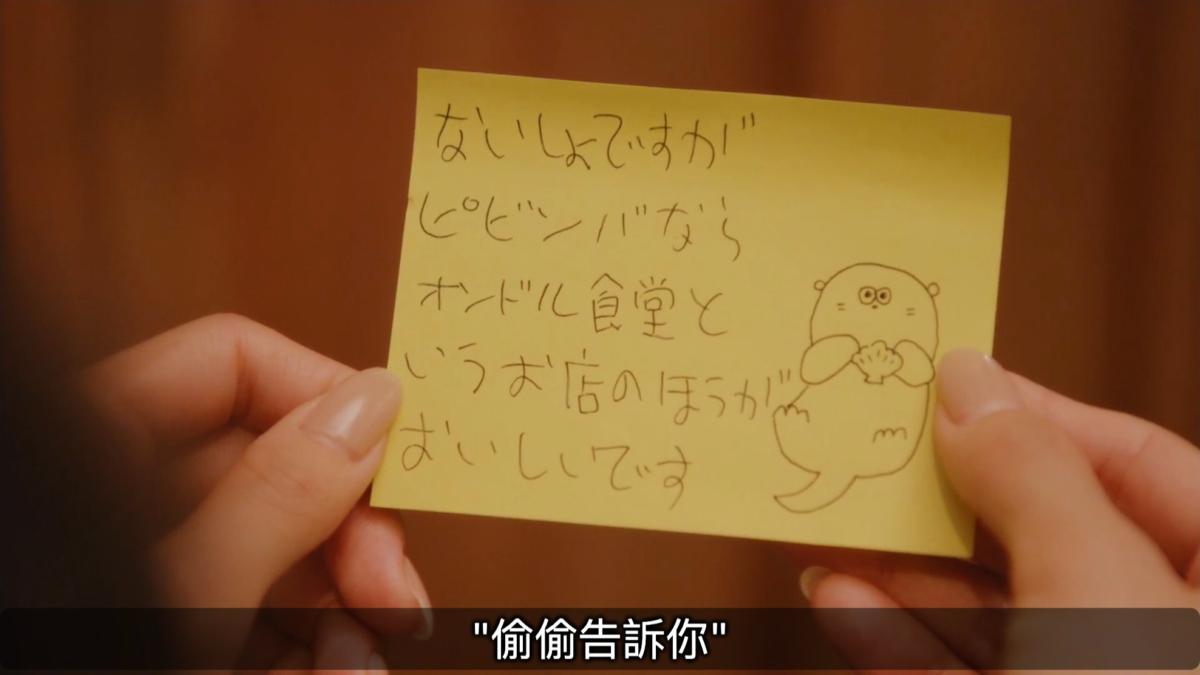 ないしょですが
ピビンバなら
オンドル食堂と
いうお店のほうが
おいしいです
"偷偷告訴你"